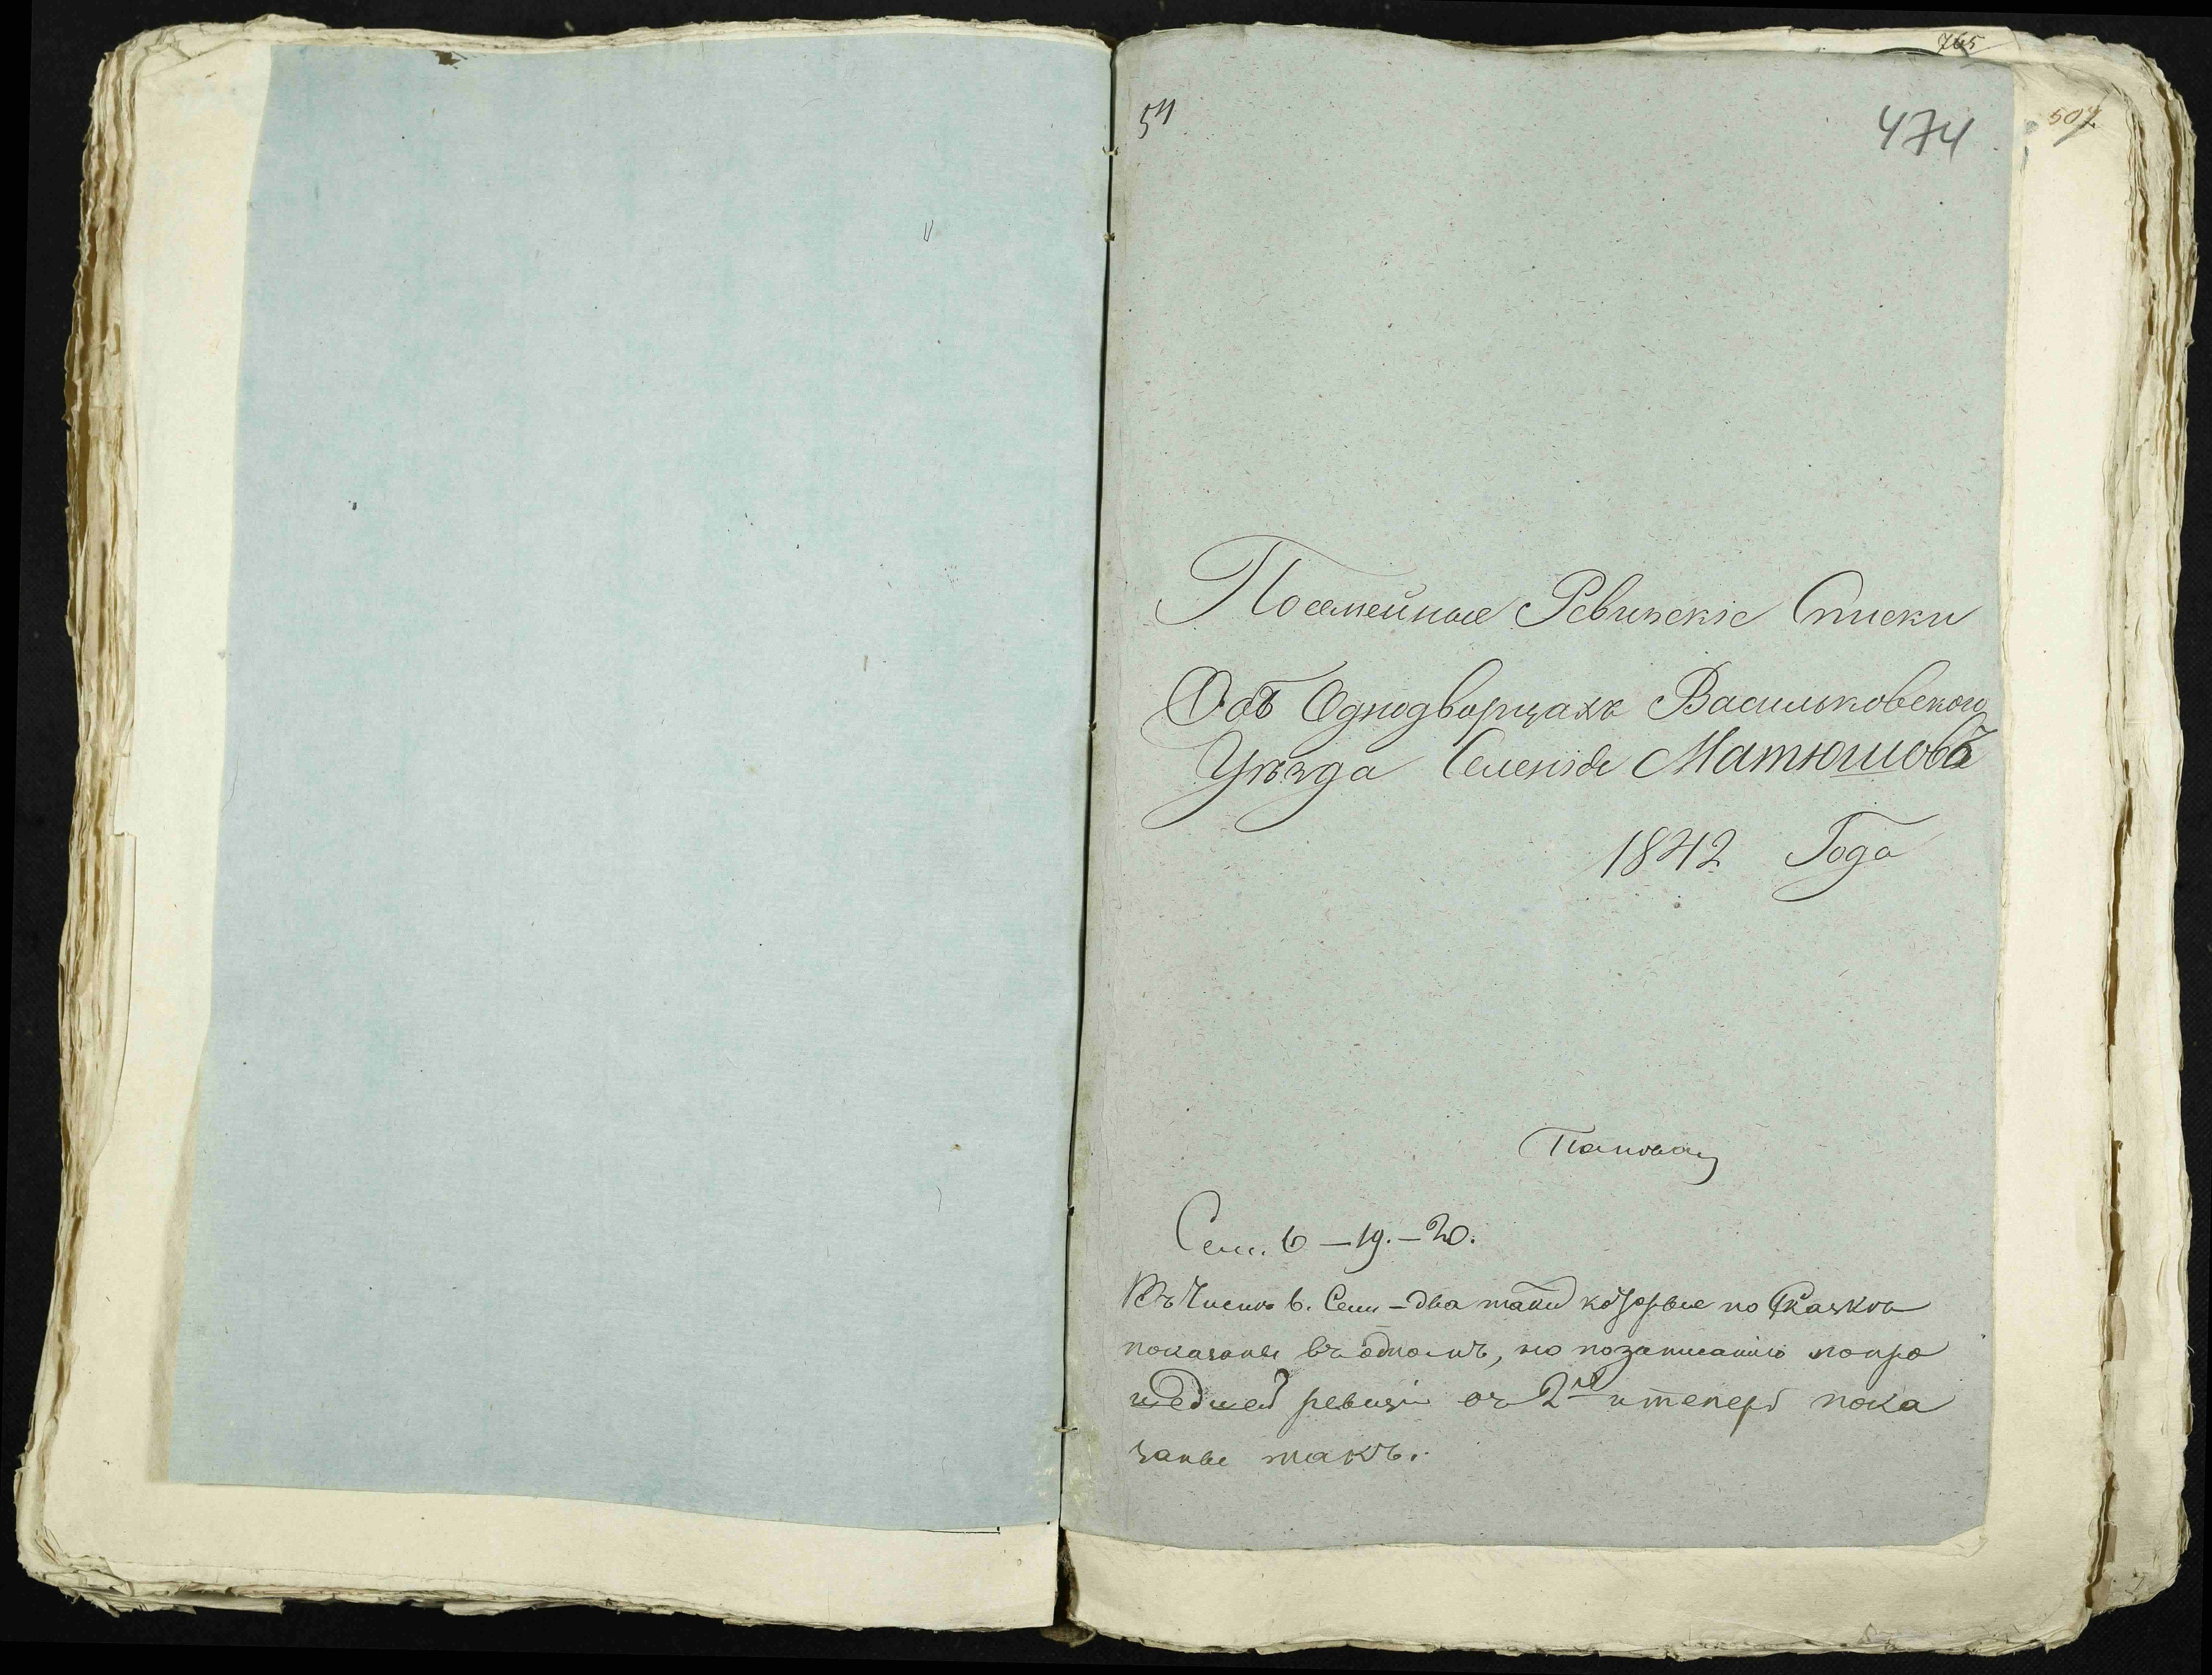 765
54
474
507
Посемейные Ревизскіе Списки
Объ Однодворцахъ Васильковского
Уѣзда Селенія Матюшовъ
1842 Года
Сем. 6 – 19. – 20.
Въ Числѣ 6. Сем – два таких которые по Сказкѣ
показаны въ одномъ, но по записанію по про
шедшей ревизіи въ 2й и теперь пока
заны такъ.